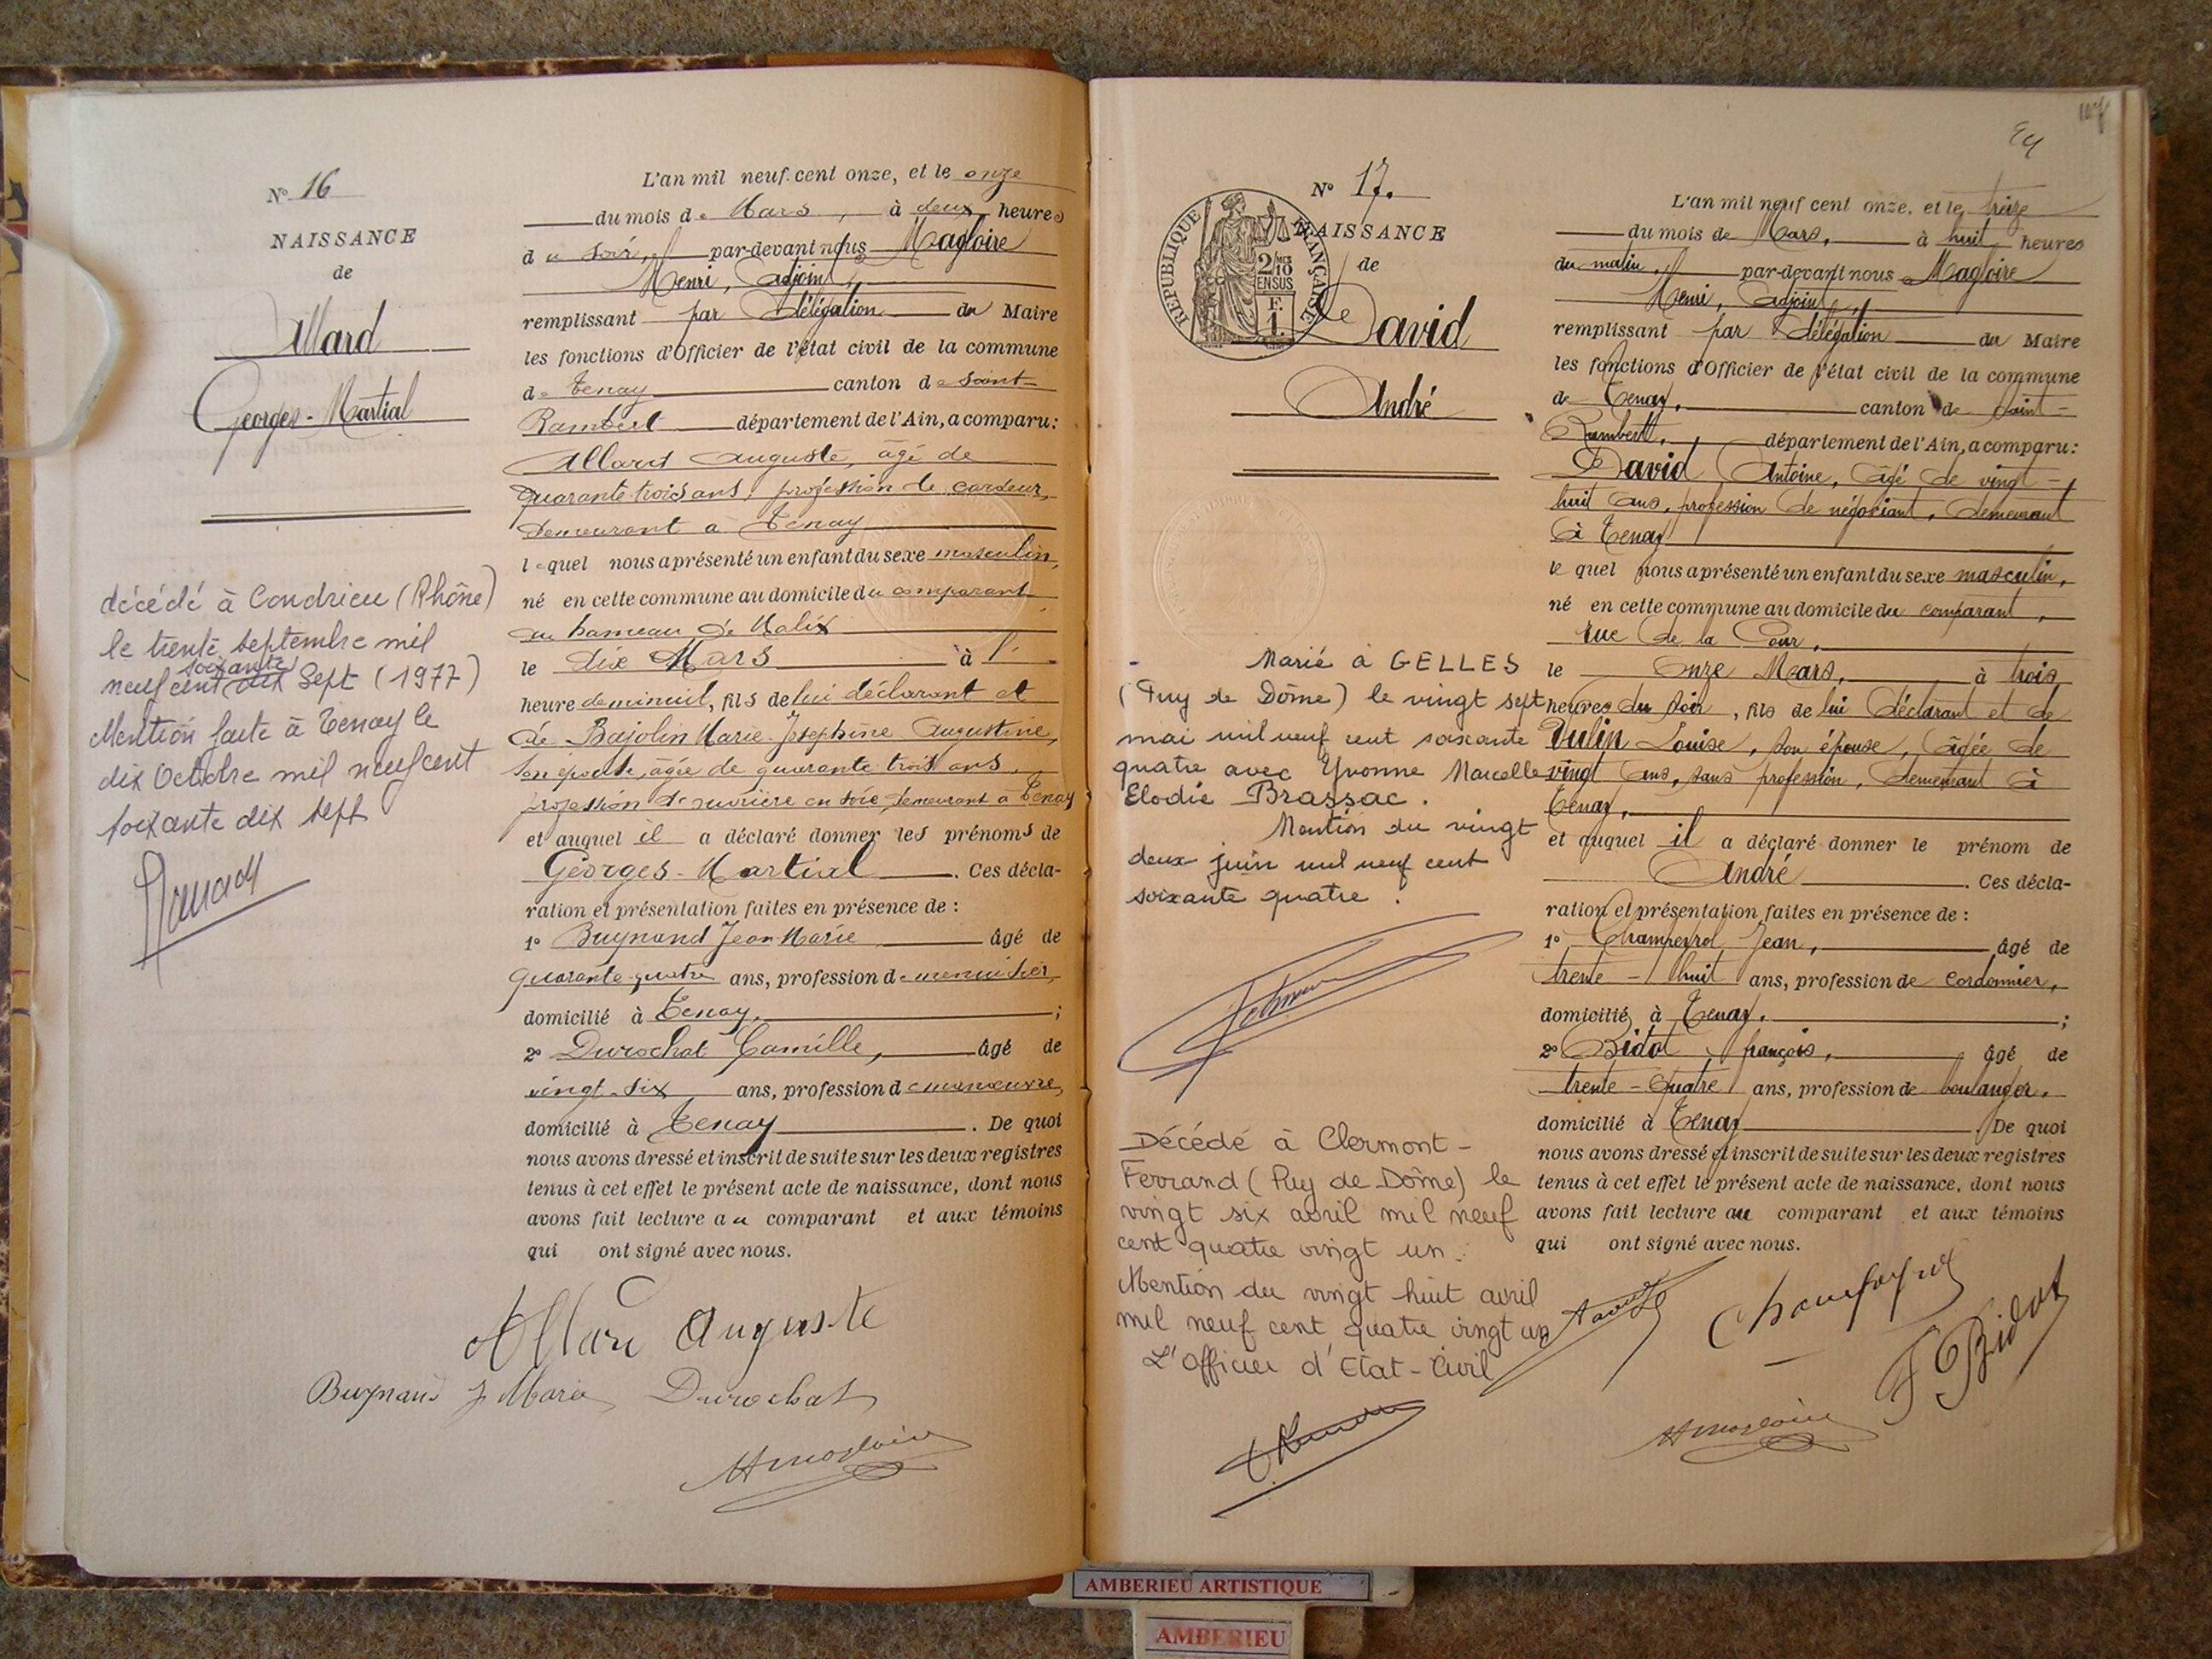 N° 16
NAISSANCE
de
Allard
Georges-Martial
décédé à Condrieu (Rhône)
le trente septembre mil
neuf cent soixante dix sept (1977)
Mention faite à Tenay le
dix Octobre mil neuf cent
soixante dix sept
L'an mil neuf cent onze, et le onze
du mois de Mars, à deux heures
du soir, par-devant nous Magloire
Henri, Adjoint,
remplissant par Délégation du Maire
les fonctions d'Officier de l'état civil de la commune
de Tenay canton de Saint-
Rambert département de l'Ain, a comparu:
Allard Auguste, âgé de
quarante trois ans, profession de cardeur,
demeurant à Tenay
lequel nous a présenté un enfant du sexe masculin,
né en cette commune au domicile du comparant
au hameau de Malix
le dix Mars à l'
heure de minuit, fils de lui déclarant et
de Bajolin Marie-Joséphine Augustine,
son épouse, âgée de quarante trois ans,
profession d'ouvrière en soie, demeurant à Tenay
et auquel il a déclaré donner les prénoms de
Georges-Martial. Ces décla-
ration et présentation faites en présence de :
1° Buynand Jean Marie âgé de
quarante-quatre ans, profession de menuisier,
domicilié à Tenay, ;
2° Durochat Camille, âgé de
vingt-six ans, profession de manœuvre,
domicilié à Tenay. De quoi
nous avons dressé et inscrit de suite sur les deux registres
tenus à cet effet le présent acte de naissance, dont nous
avons fait lecture au comparant et aux témoins
qui ont signé avec nous.
Allard Auguste
Buynand J Marie Durochat
H Magloire
114
N° 17.
NAISSANCE
de
REPUBLIQUE FRANÇAISE
2/10 MES EN SUS
F. 1.
David
André
Marié à GELLES
(Puy de Dôme) le vingt sept
mai mil neuf cent soixante
quatre avec Yvonne Marcelle
Elodie Brassac.
Mention du vingt
deux juin mil neuf cent
soixante quatre.
Décédé à Clermont-
Ferrand (Puy de Dôme) le
vingt six avril mil neuf
cent quatre vingt un.
Mention du vingt huit avril
mil neuf cent quatre vingt un
L'officier d'Etat-Civil
L'an mil neuf cent onze, et le treize
du mois de Mars, à huit heures
du matin, par-devant nous Magloire
Henri, Adjoint,
remplissant par Délégation du Maire
les fonctions d'Officier de l'état civil de la commune
de Tenay, canton de Saint-
Rambert, département de l'Ain, a comparu:
David Antoine, âgé de vingt-
huit ans, profession de négociant, demeurant
à Tenay
lequel nous a présenté un enfant du sexe masculin,
né en cette commune au domicile du comparant,
rue de la Cour,
le onze Mars, à trois
heures du soir, fils de lui déclarant et de
Vulin Louise, son épouse, âgée de
vingt ans, sans profession, demeurant à
Tenay,
et auquel il a déclaré donner le prénom de
André. Ces décla-
ration et présentation faites en présence de :
1° Champeyrol Jean, âgé de
trente-huit ans, profession de cordonnier,
domicilié à Tenay. ;
2° Bidot françois, âgé de
trente-quatre ans, profession de boulanger,
domicilié à Tenay. De quoi
nous avons dressé et inscrit de suite sur les deux registres
tenus à cet effet le présent acte de naissance, dont nous
avons fait lecture au comparant et aux témoins
qui ont signé avec nous.
F Bidot
H Magloire
AMBERIEU ARTISTIQUE
AMBERIEU